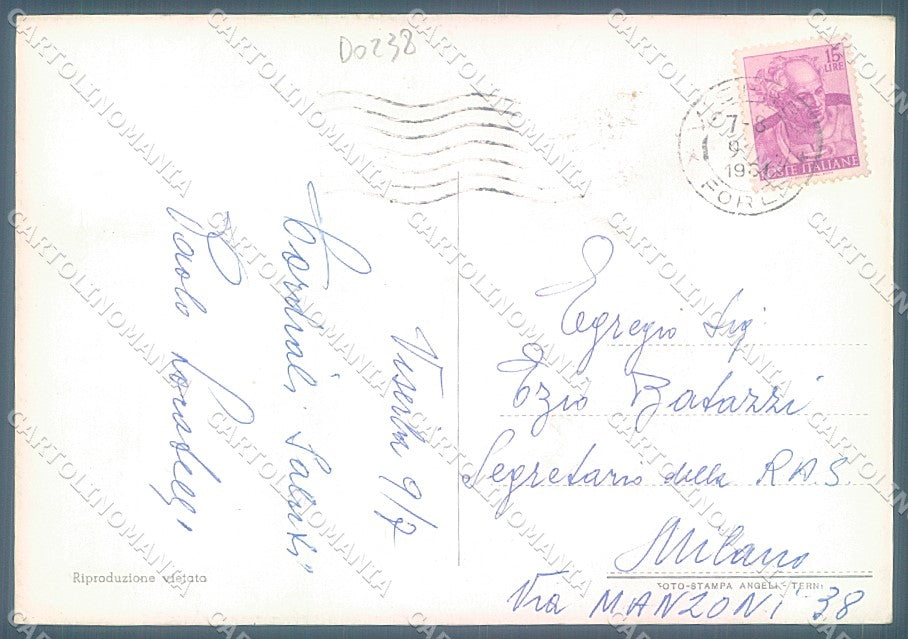 D0238
15
LIRE
POSTE ITALIANE
7-8
FORLI
Viserba 9/7
Cordiali Saluti
Paolo
Egregio Sig.
Ezio Batazzi
Segretario della R.A.S.
Milano
Via MANZONI 38
Riproduzione vietata
FOTO-STAMPA ANGELI - TERNI
CARTOLINOMANIA